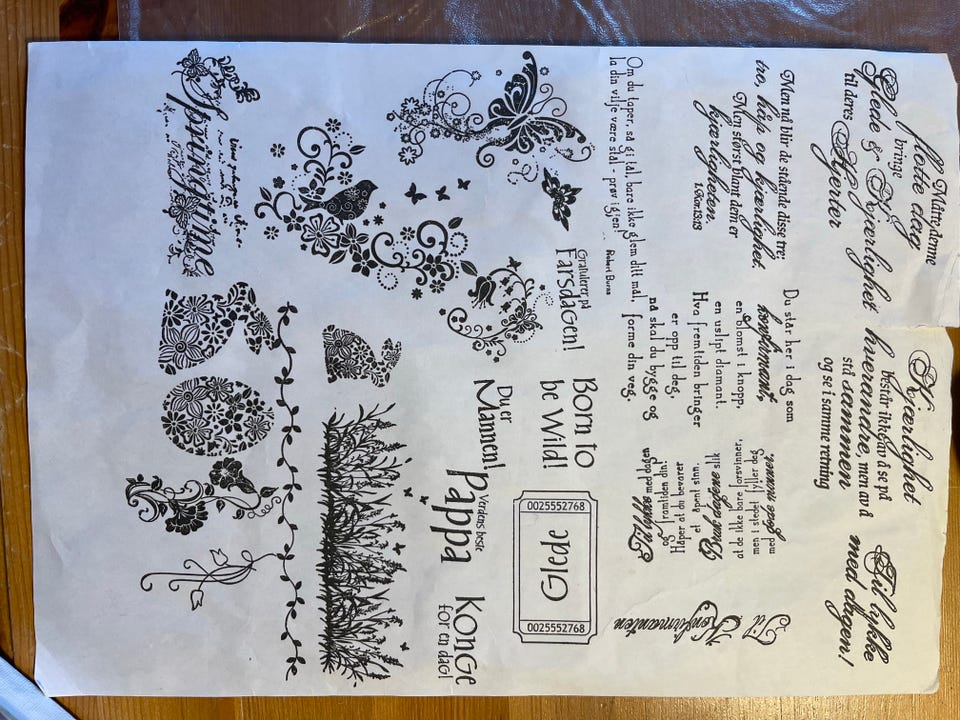 Måtte denne
flotte dag
bringe
Glede & Kjærlighet
til deres
Hjerter
Kjærlighet
består ikke av å se på
hverandre, men av å
stå sammen
og se i samme retning
Til lykke
med dagen!
Men nå blir de stående disse tre:
tro, håp og kjærlighet.
Men størst blant dem er
kjærligheten.
1.Kor.13:13
Du står her i dag som
konfirmant,
en blomst i knopp,
en uslipt diamant.
Hva fremtiden bringer
er opp til deg,
nå skal du bygge og
forme din veg.
Til lykke med dagen
og familien din!
Håper at du bevarer
et åpent sinn.
Bruk dagene slik
at de ikke bare forsvinner,
men i stedet fyller deg
med gode minner.
Til
Konfirmanten
Om du taper, så gi tal bare ikke glem ditt mål,
la din vilje være stål - prøv igjen!
Robert Burns
Gratulerer på
Farsdagen!
Born to
be Wild!
0025552768
Glede
0025552768
Du er
Mannen!
Verdens beste
Pappa
Konge
for en dag!
Springtime